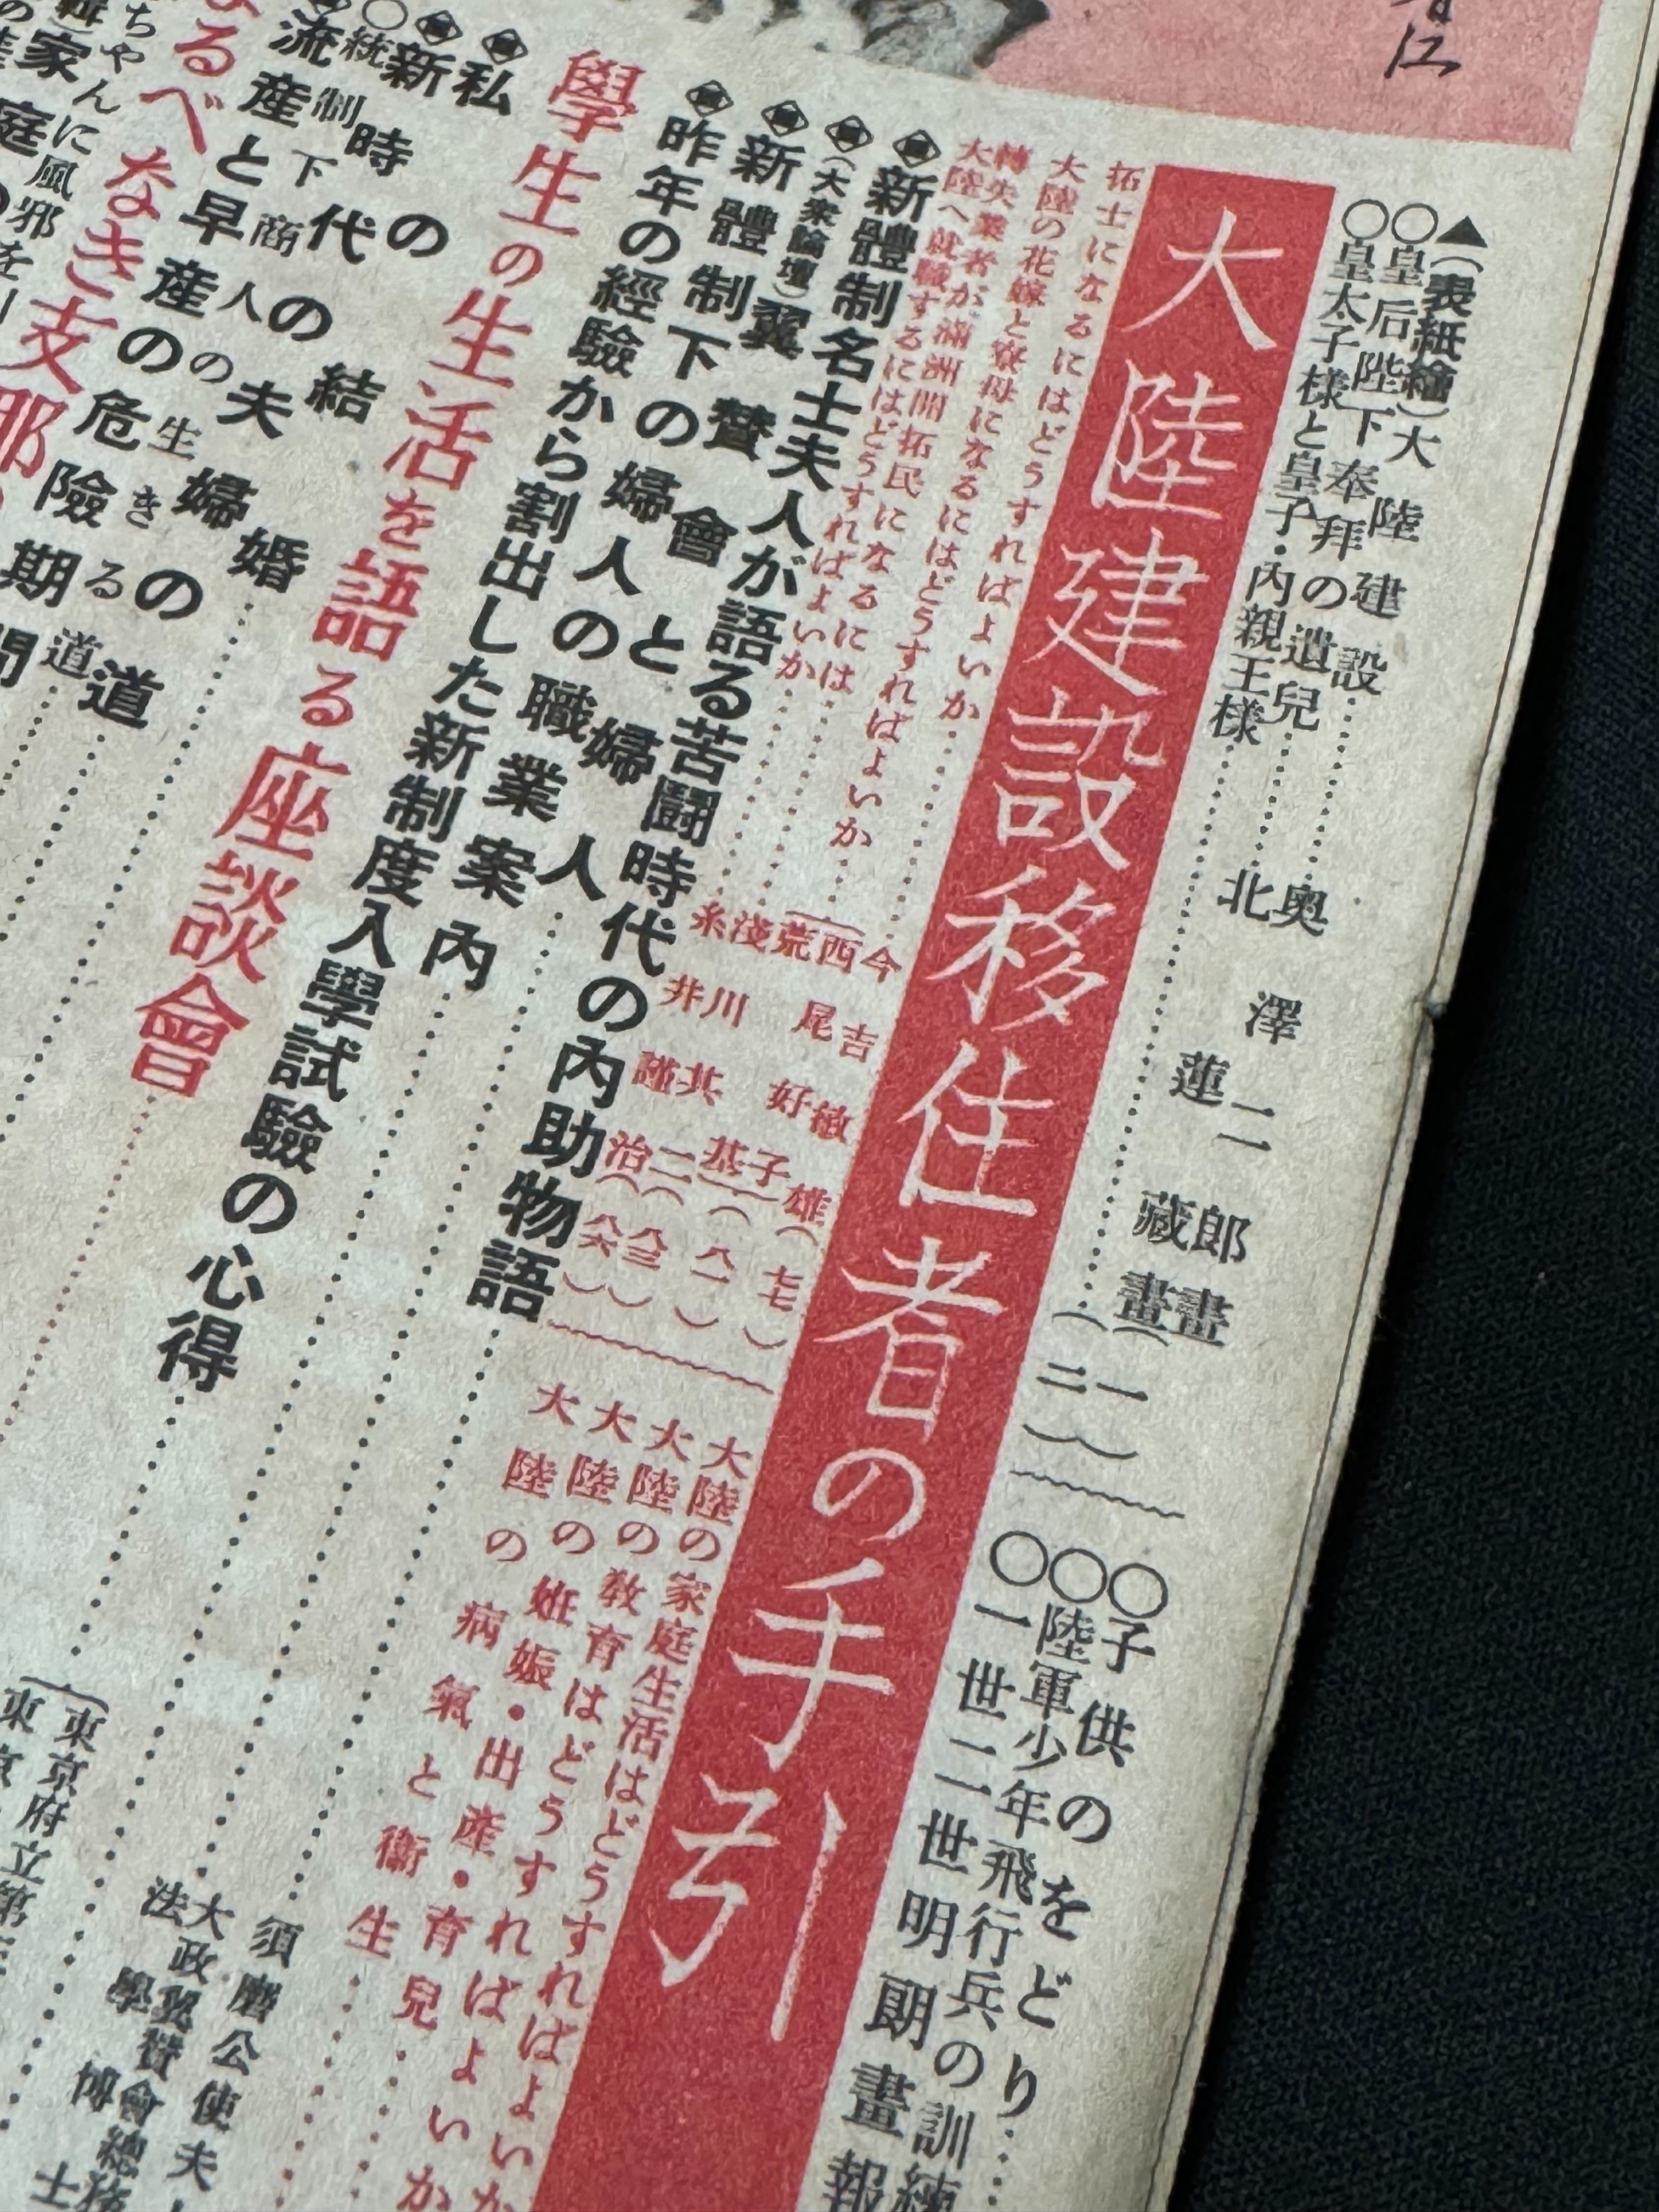 ▲(表紙繪)大陸建設
○皇后陛下奉拜の遺兒……奥澤二郎畫(一)
○皇太子様と皇子・内親王様……北蓮藏畫(二)
○子供のをどり
○陸軍少年飛行兵の訓練
○一世二世明朗畫報
大陸建設移住者の手引
拓士になるにはどうすればよいか……今吉敏雄(七七)
大陸の花嫁と寮母になるにはどうすればよいか……西尾好子
轉失業者が滿洲開拓民になるにはどうすればよいか
大陸へ就職するにはどうすればよいか……糸井謹治
大陸の家庭生活はどうすればよいか
大陸の教育はどうすればよいか
大陸の姙娠・出産・育兒
大陸の病氣と衞生
新體制名士夫人が語る苦鬪時代の内助物語
(大衆論壇)翼賛會と婦人……大政翼賛會總務
新體制下の婦人の職業案内
昨年の經驗から割出した新制度入學試驗の心得
學生の生活を語る座談會
私の結婚
新時代の夫婦の道
統制下商人の生きる道
流産と早産の危險期間
るべなき支那
ちやんに風邪を
家庭
須磨公使夫
法學博士
東京府立第